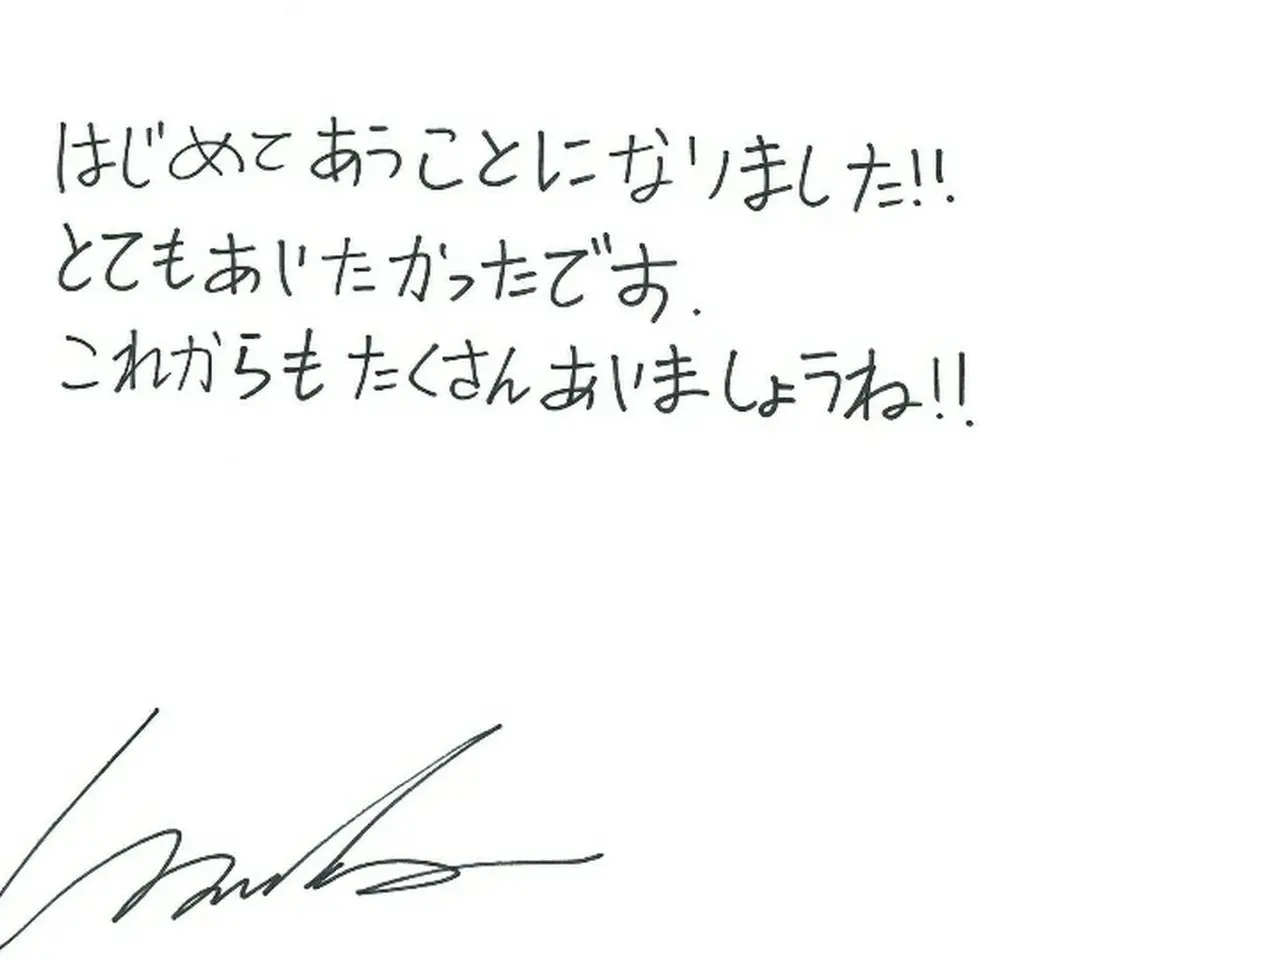 はじめて あうことになりました!!
とてもあいたかったです.
これからも たくさん あいましょうね!!